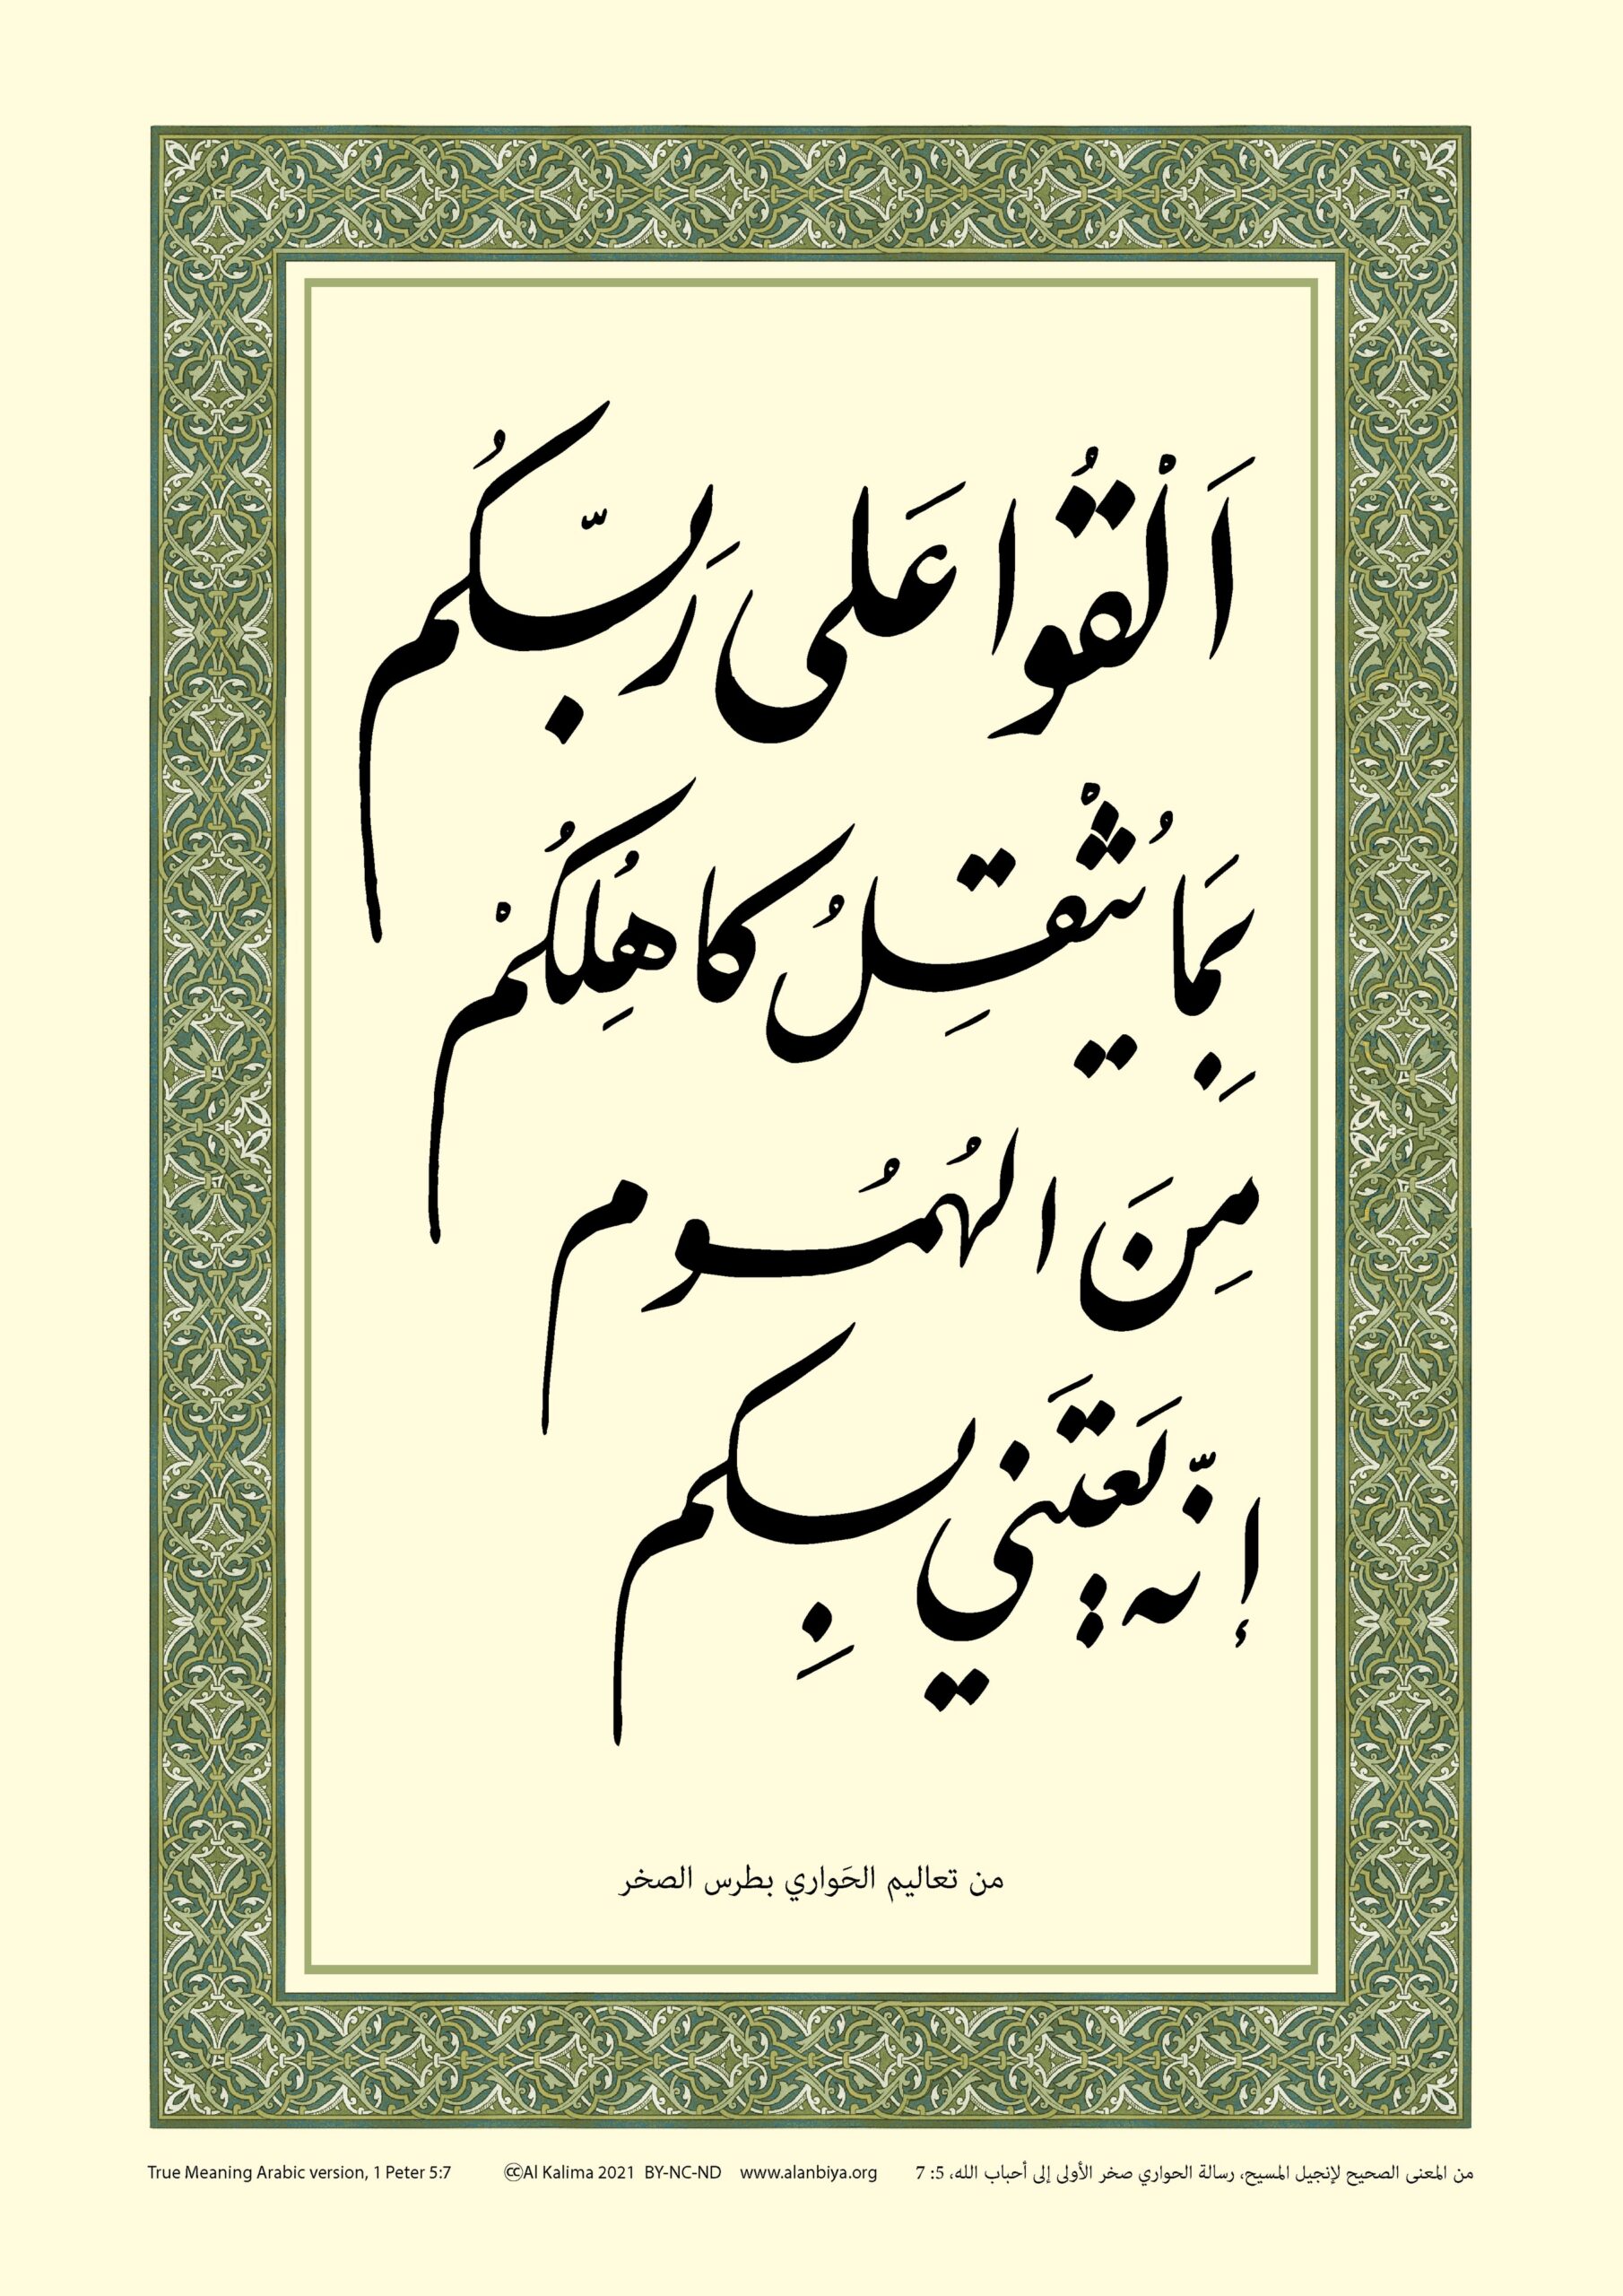 اَلْقُوا عَلى رَبّكُم
بِمَا يُثْقِلُ كاهِلَكُمْ
مِنَ الهُمُوم
إنّه يَعتَني بِكم
من تعاليم الحَواري بطرس الصخر
True Meaning Arabic version, 1 Peter 5:7 🄯Al Kalima 2021 BY-NC-ND www.alanbiya.org من المعنى الصحيح لإنجيل المسيح، رسالة الحواري صخر الأولى إلى أحباب الله، 5: 7